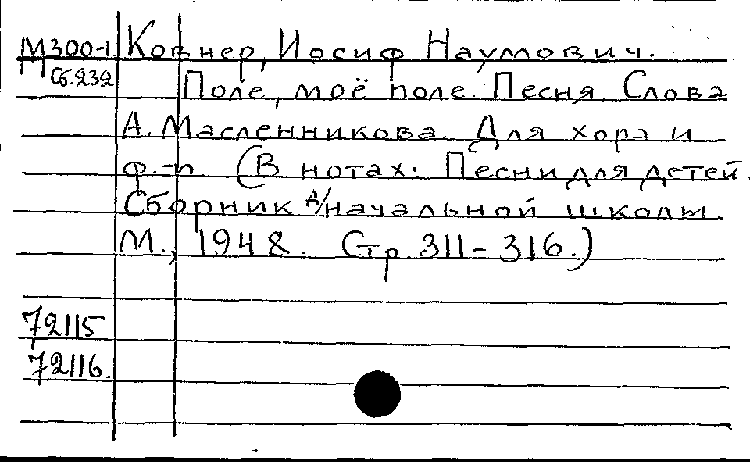 М300-1 Ковнер, Иосиф Наумович.
М Сб.232
Поле, моё поле. Песня Слова
А. Масленникова. Для хора и
ф.-п. (В нотах: Песни для детей.
Сборник д/начальной школы.
М., 1948. Стр. 311-316.)
72115
72116.